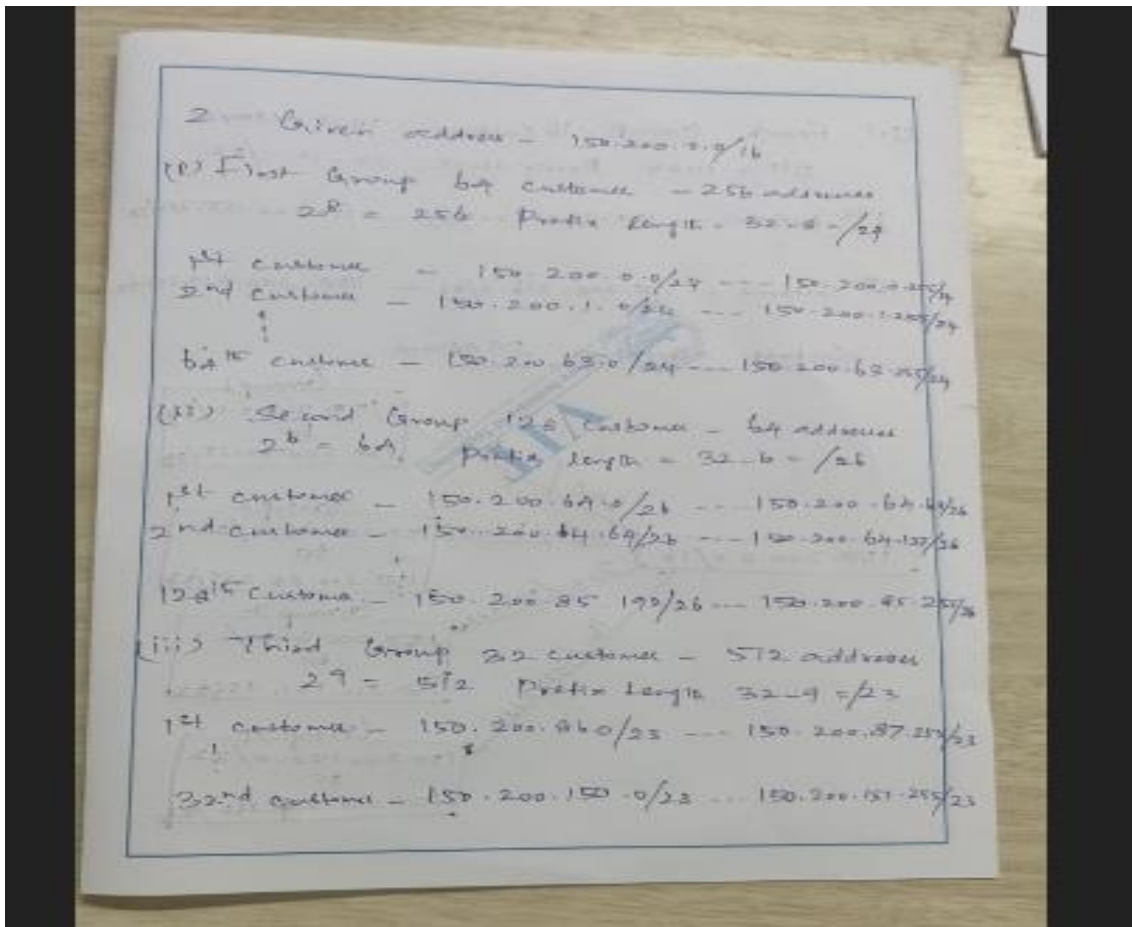 2 Given address - 150.200.0.0/16
(i) First Group 64 customer - 256 addresses
2^8 = 256 Prefix length = 32-8 = /24
1st customer - 150.200.0.0/24 --- 150.200.0.255/24
2nd customer - 150.200.1.0/24 --- 150.200.1.255/24
64th customer - 150.200.63.0/24 --- 150.200.63.255/24
(ii) Second Group customer - 64 addresses
2^6 = 64 Prefix length = 32-6 = /26
1st customer - 150.200.64.0/26 --- 150.200.64.63/26
2nd customer - 150.200.64.64/26 --- 150.200.64.127/26
customer - 150.200.85.192/26 --- 150.200.85.255/26
(iii) Third Group 32 customer - 512 addresses
2^9 = 512 Prefix length 32-9 = /23
1st customer - 150.200.86.0/23 --- 150.200.87.255/23
32nd customer - 150.200.150.0/23 --- 150.200.151.255/23